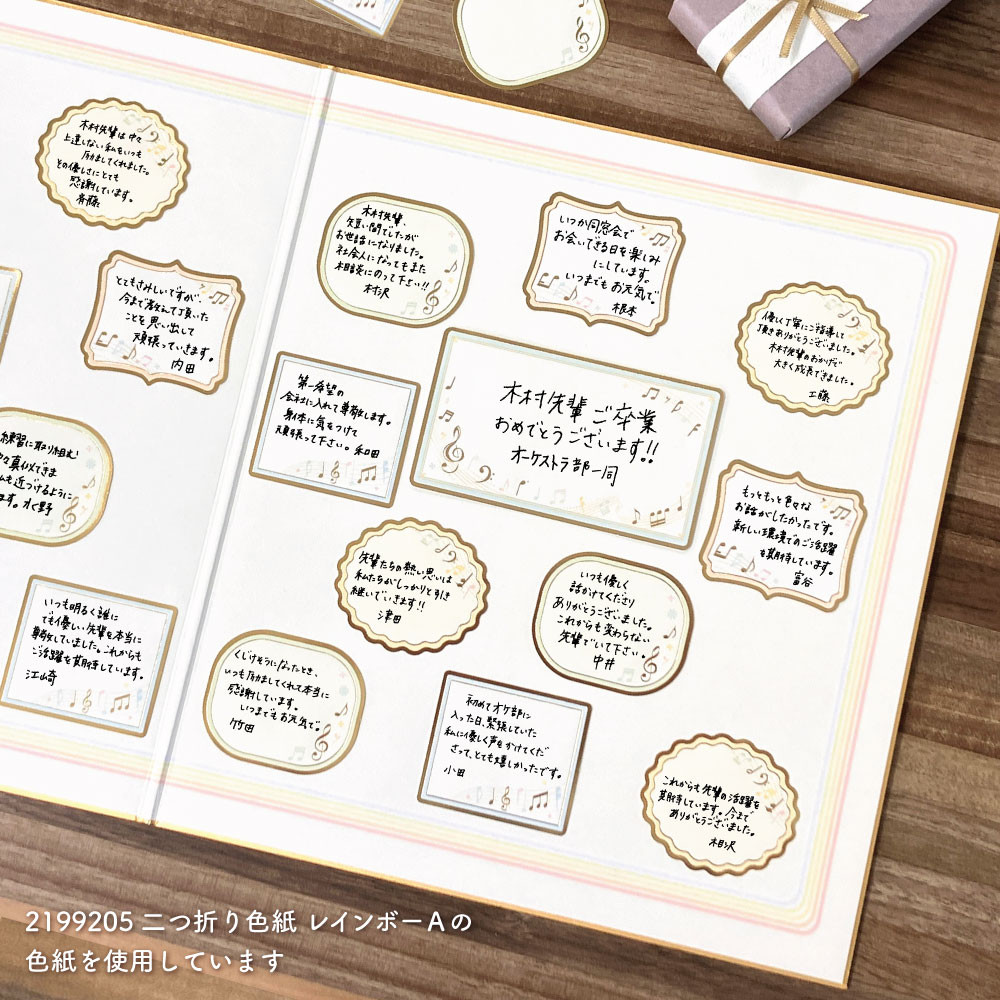 木村先輩は中々
上達しない私をいつも
励ましてくれました。
その優しさにとても
感謝しています。
斉藤
とてもさみしいですが、
今まで教えて頂いた
ことを思い出して
頑張っていきます。
内田
練習に取り組む
真似できま
も近づけるように
ます。水野
いつも明るく誰に
でも優しい先輩を本当に
尊敬していました。これからも
ご活躍を期待しています。
江崎
木村先輩、
短い間でしたが
お世話になりました。
社会人になってもまた
相談にのって下さい!!
村沢
いつか同窓会で
お会いできる日を楽しみ
にしています。
いつまでもお元気で。
根本
優しく丁寧にご指導して
頂きありがとうございました。
木村先輩のおかげで
大きく成長できました。
工藤
第一希望の
会社に入れて尊敬します。
身体に気をつけて
頑張って下さい。和田
木村先輩ご卒業
おめでとうございます!!
オーケストラ部一同
もっともっと色々な
お話がしたかったです。
新しい環境でのご活躍
を期待しています。
富谷
先輩たちの熱い思いは
私たちがしっかりと引き
継いでいきます!!
津田
いつも優しく
話かけてくださり
ありがとうございました。
これからも変わらない
先輩でいて下さい。
中井
くじけそうになったとき、
いつも励ましてくれて本当に
感謝しています。
いつまでもお元気で。
竹田
初めてオケ部に
入った日、緊張していた
私に優しく声をかけてくだ
さって、とても嬉しかったです。
小田
これからも先輩の活躍を
期待しています。今まで
ありがとうございました。
相沢
2199205 二つ折り色紙 レインボーAの
色紙を使用しています